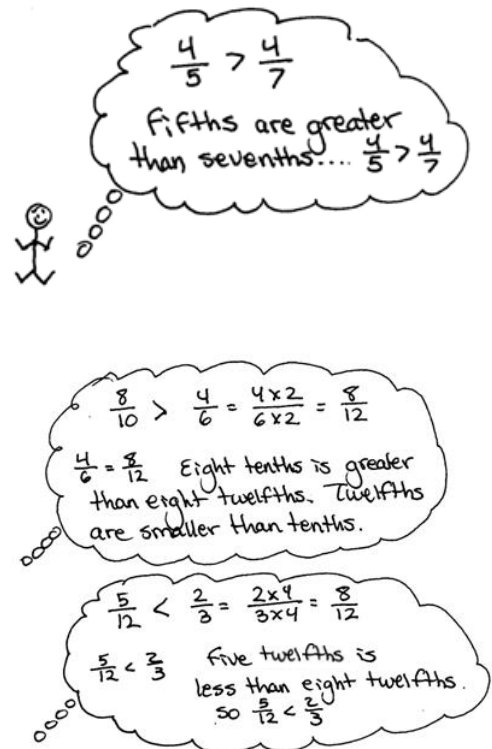 4/5 > 4/7
Fifths are greater
than sevenths.... 4/5 > 4/7
8/10 > 4/6 = 4x2/6x2 = 8/12
4/6 = 8/12 Eight tenths is greater
than eight twelfths. Twelfths
are smaller than tenths.
5/12 < 2/3 = 2x4/3x4 = 8/12
5/12 < 2/3 Five twelfths is
less than eight twelfths.
so 5/12 < 2/3